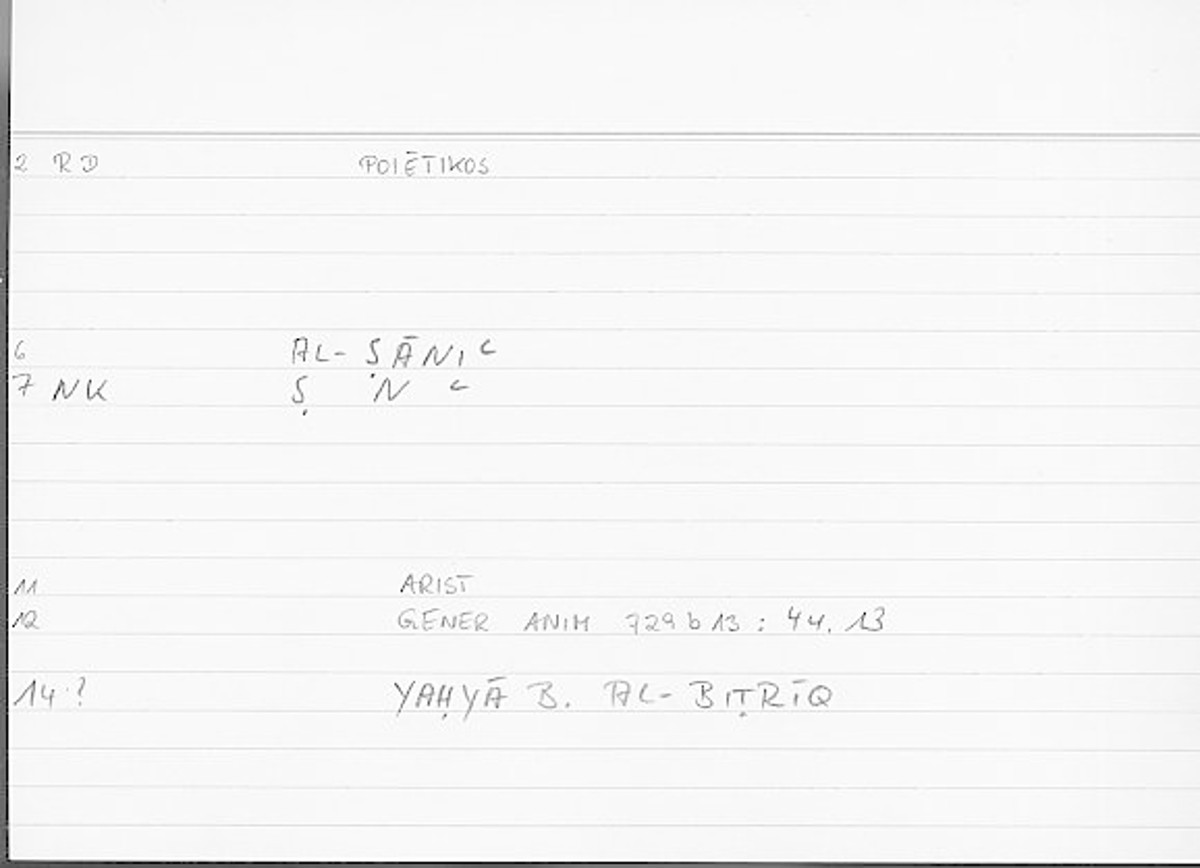 2 RD POIĒTIKOS
6 AL-ṢĀNIʿ
7 NK Ṣ N ʿ
11 ARIST
12 GENER ANIM 729 b 13 : 44. 13
14 ? YAḤYĀ B. AL-BIṬRĪQ